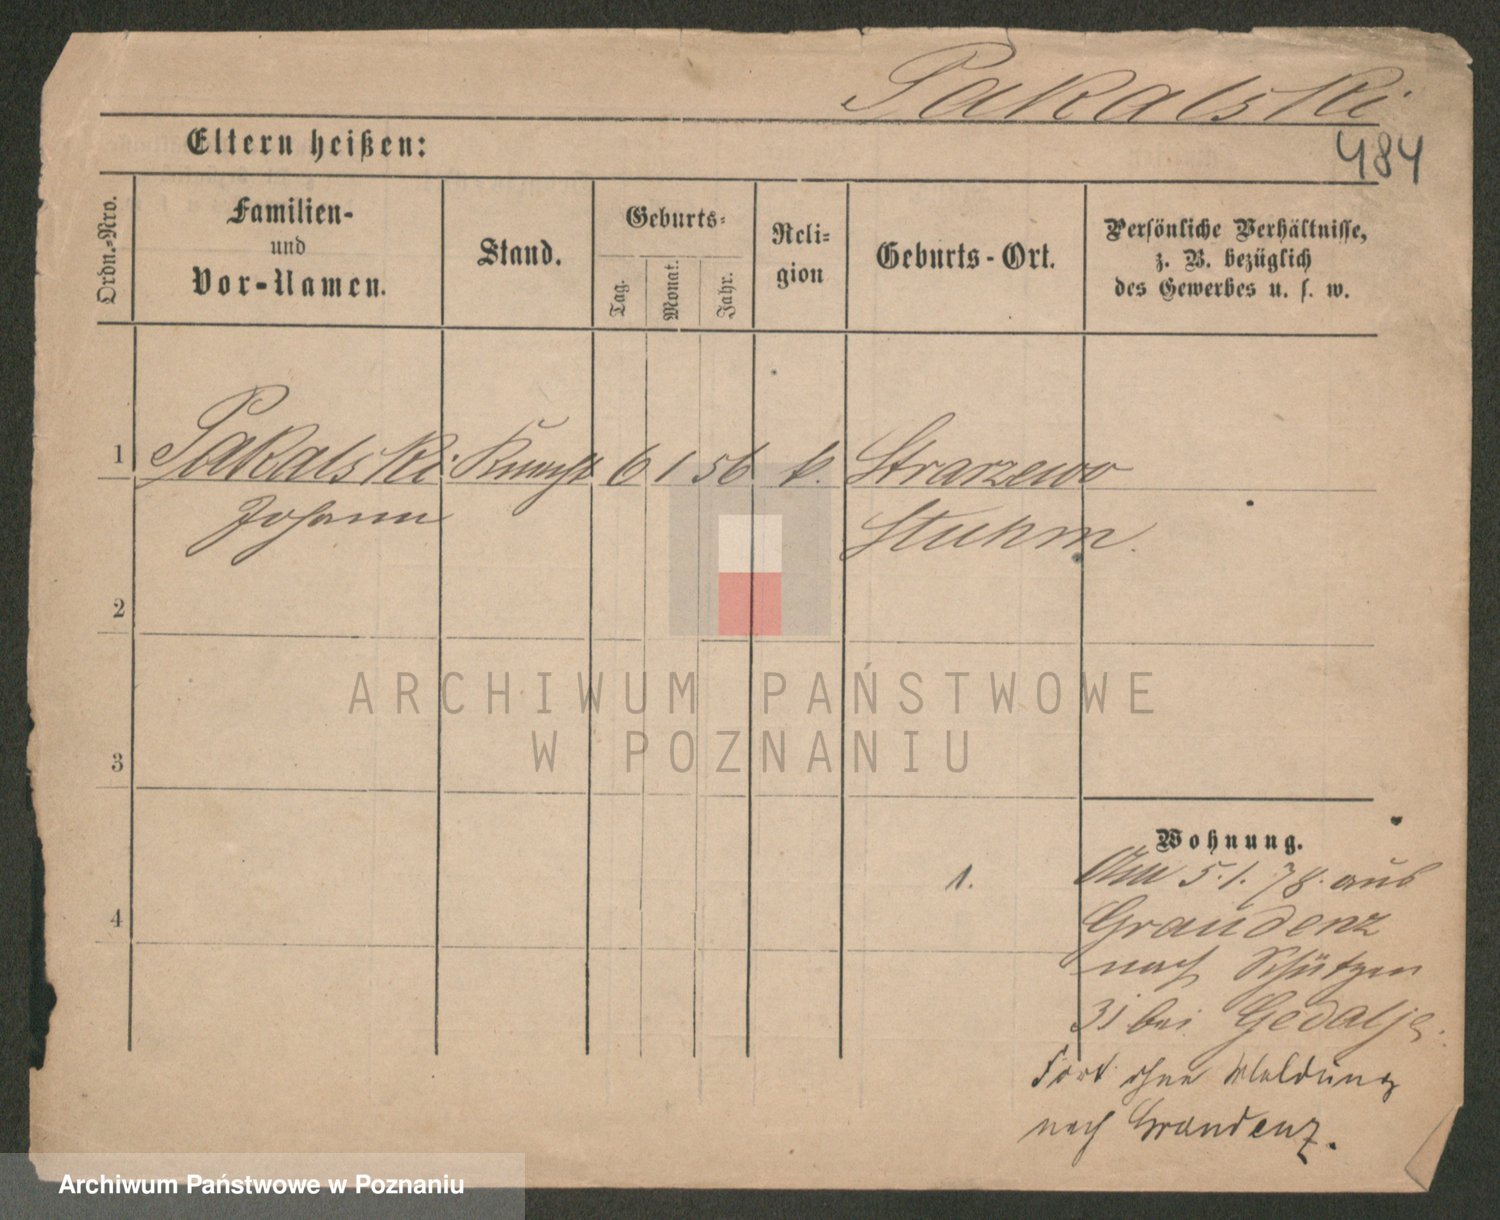 Pakalski
484
Eltern heißen:
Ordn.-Nro.
Familien-
und
Vor-Namen.
Stand.
Geburts-
Tag.
Monat.
Jahr.
Reli-
gion
Geburts-Ort.
Persönliche Verhältnisse,
z. B. bezüglich
des Gewerbes u. s. w.
1 Pakalski Knecht 6 1 56 k. Strarzewo
Johann Stuhm.
2
3
4
1.
Wohnung.
5.1.78. aus
Graudenz
nach Schützen
31 bei Gedalje.
Fort ohne Meldung
nach Graudenz.
ARCHIWUM PAŃSTWOWE
W POZNANIU
Archiwum Państwowe w Poznaniu